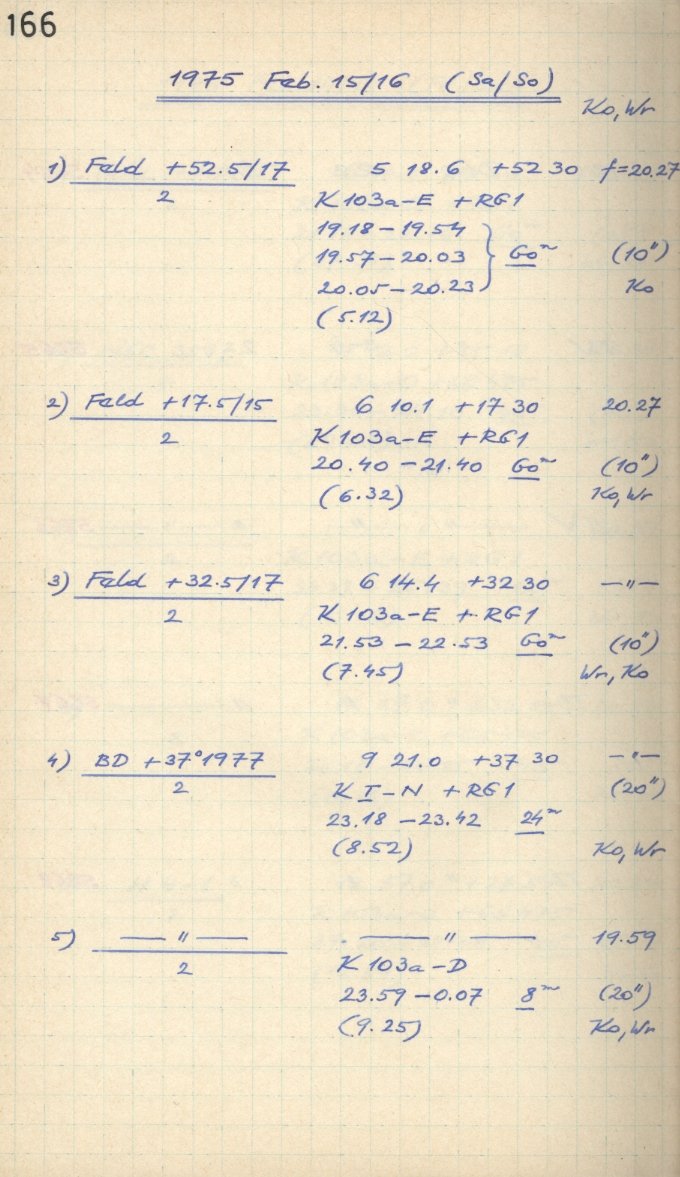 166
1975 Feb. 15/16 (Sa/So)
Ko, Wr
1) Feld +52.5/17 5 18.6 +52 30 f=20.27
2 K 103a-E + RG1
19.18 – 19.54
19.57 – 20.03 } 60ᵐ (10")
20.05 – 20.23 Ko
(5.12)
2) Feld +17.5/15 6 10.1 +17 30 20.27
2 K 103a-E + RG1
20.40 – 21.40 60ᵐ (10")
(6.32) Ko, Wr
3) Feld +32.5/17 6 14.4 +32 30 —"—
2 K 103a-E + RG1
21.53 – 22.53 60ᵐ (10")
(7.45) Wr, Ko
4) BD +37°1977 9 21.0 +37 30 —"—
2 K I-N + RG1 (20")
23.18 – 23.42 24ᵐ
(8.52) Ko, Wr
5) —"— —"— 19.59
2 K 103a-D
23.59 – 0.07 8ᵐ (20")
(9.25) Ko, Wr